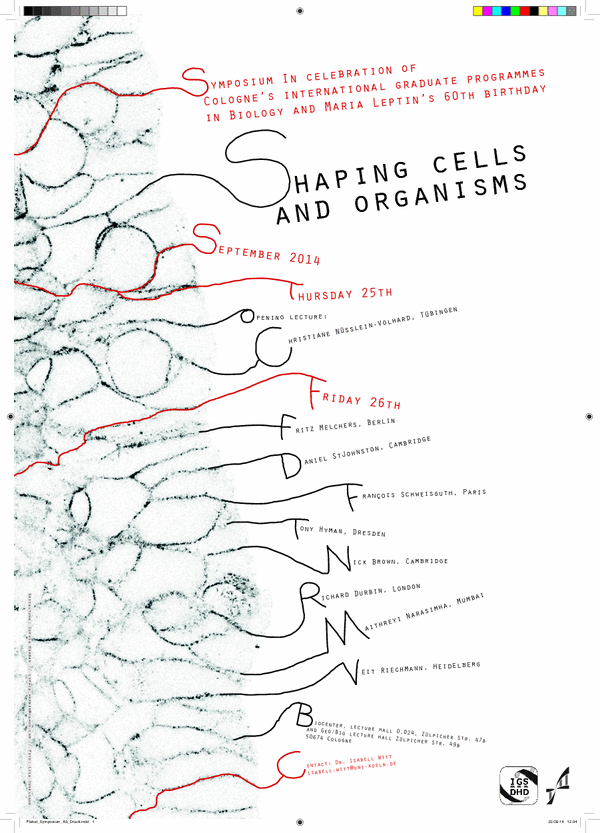 Symposium In celebration of
Cologne's international graduate programmes
in Biology and Maria Leptin's 60th birthday
Shaping cells
and organisms
September 2014
Thursday 25th
Opening lecture:
Christiane Nüsslein-Volhard, Tübingen
Friday 26th
Fritz Melchers, Berlin
Daniel StJohnston, Cambridge
François Schweisguth, Paris
Tony Hyman, Dresden
Nick Brown, Cambridge
Richard Durbin, London
Maithreyi Narasimha, Mumbai
Veit Riechmann, Heidelberg
Biocenter, lecture hall 0.024, Zülpicher Str. 47a
and Geo/Bio lecture hall Zülpicher Str. 49a
50674 Cologne
Contact: Dr. Isabell Witt
isabell-witt@uni-koeln.de
IGS
DHD